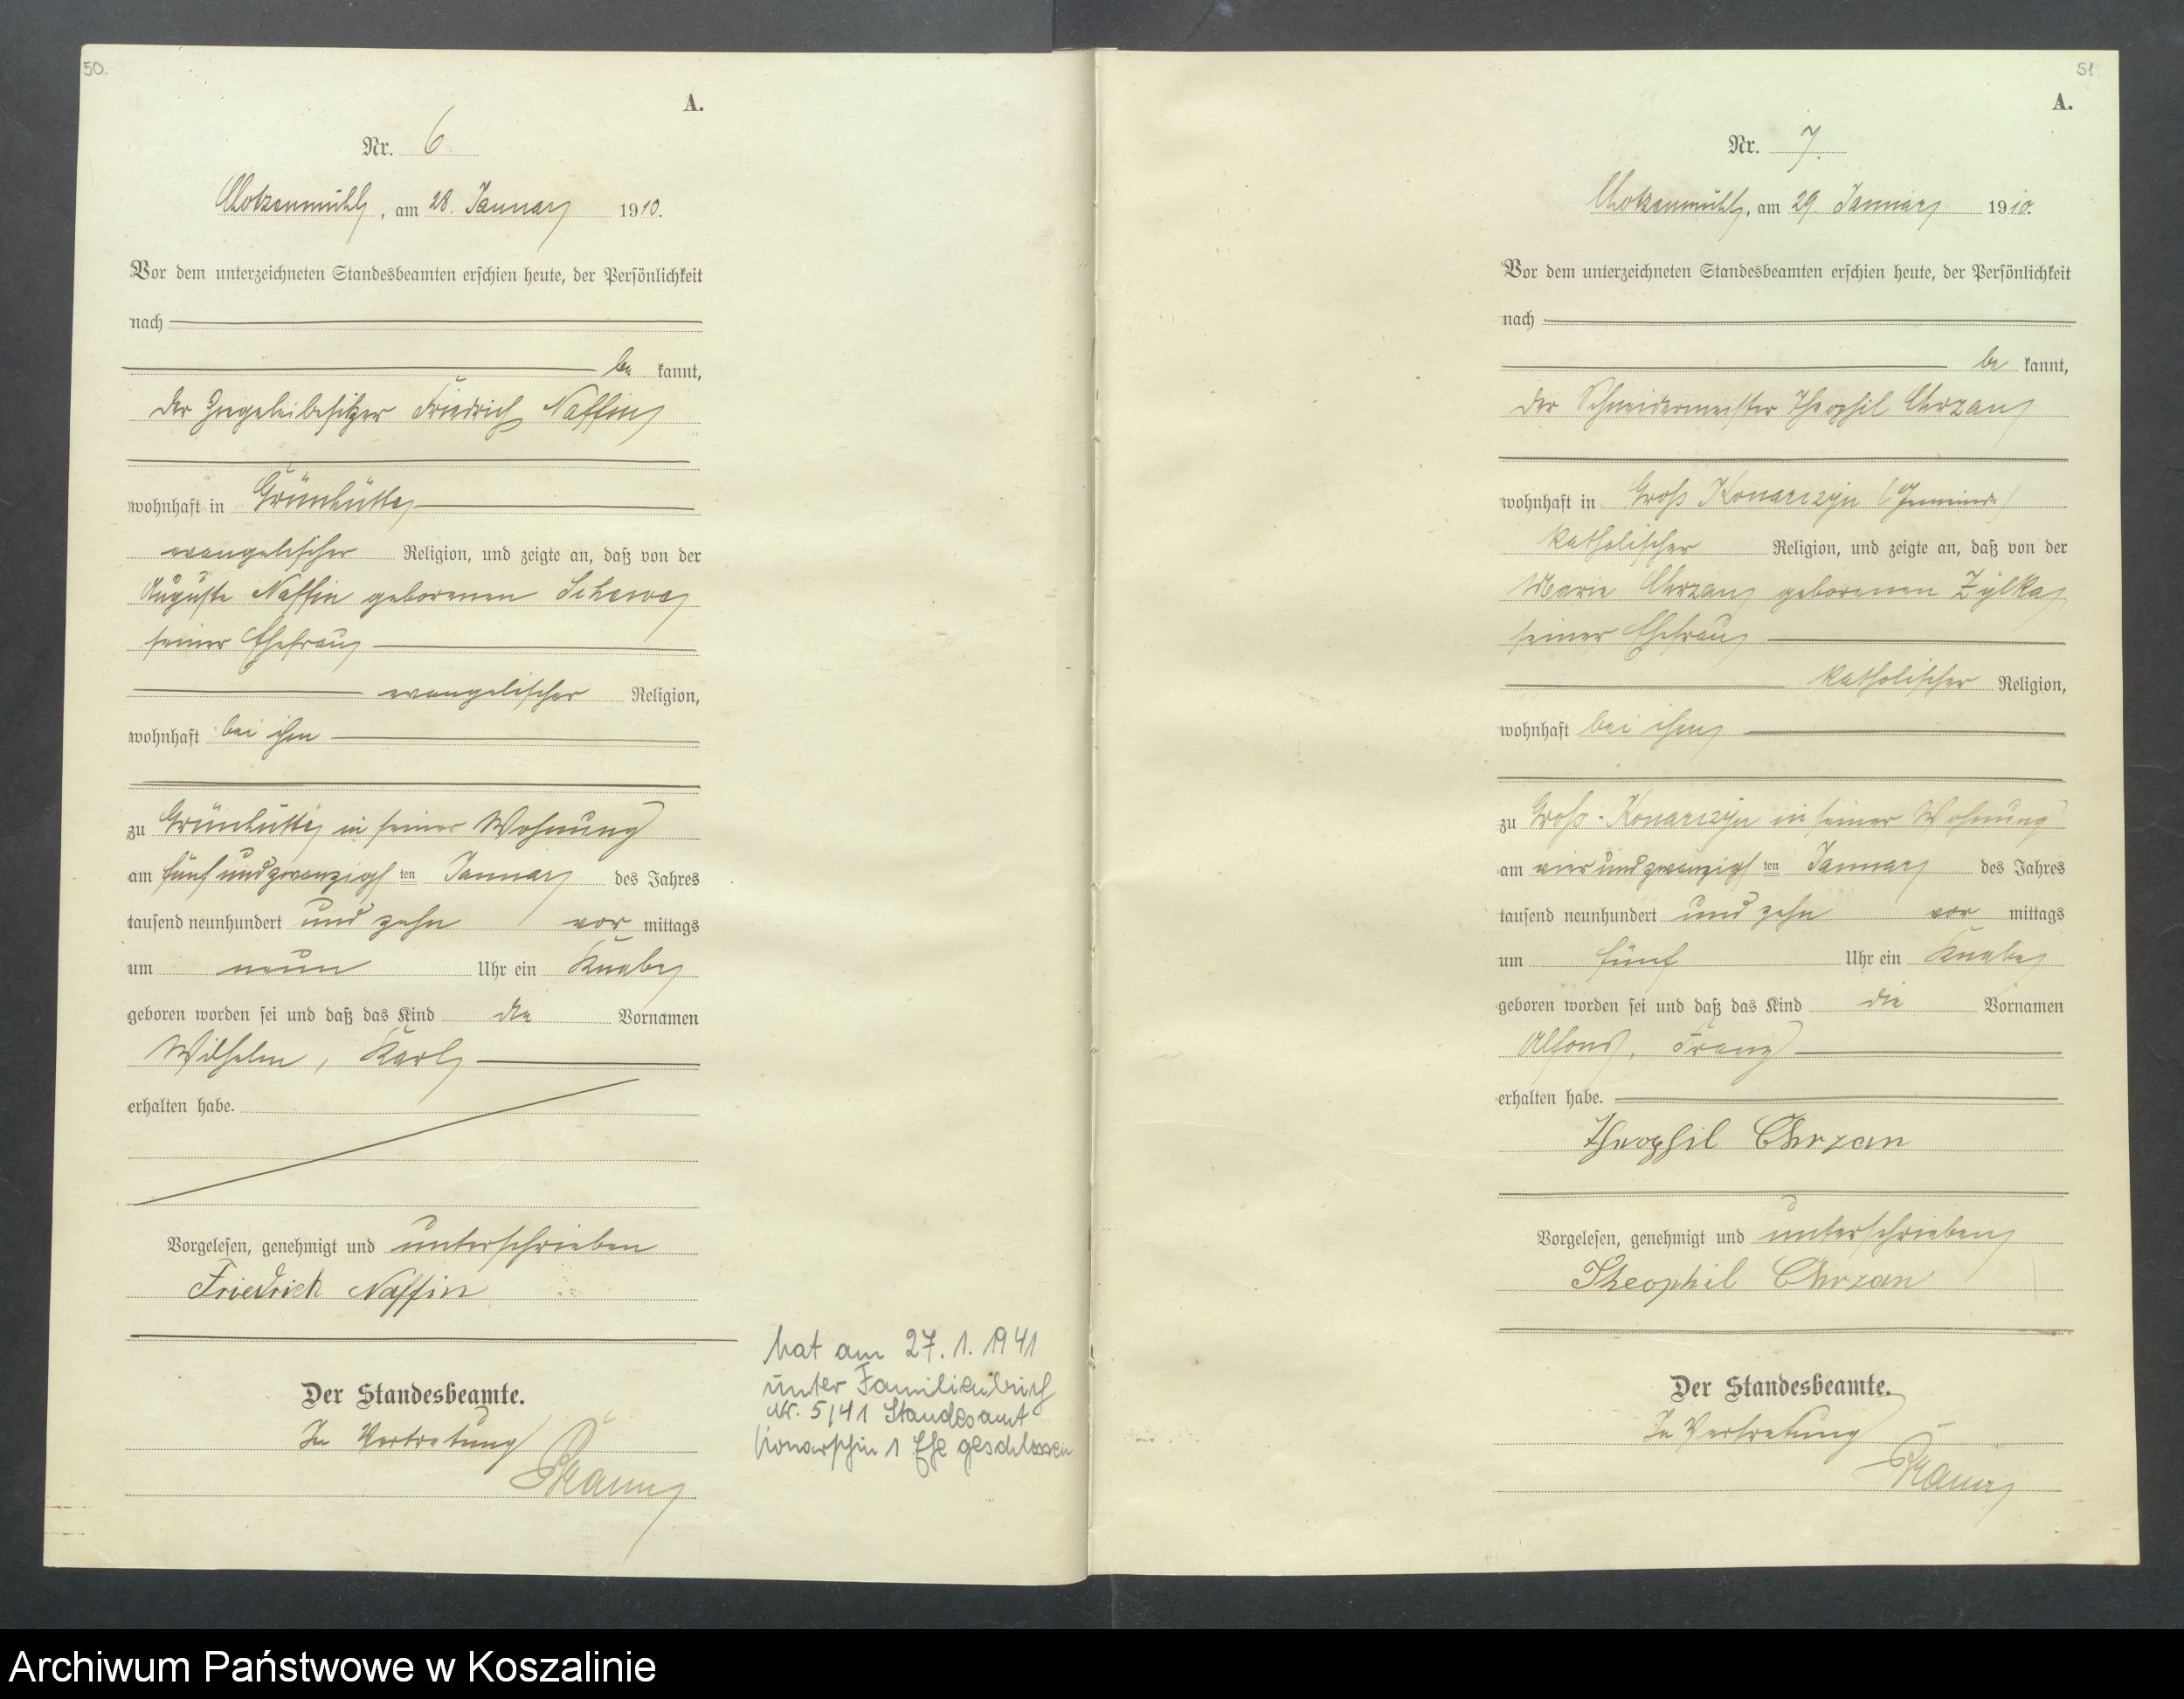 50.
A.
Nr. 6.
Chotzenmühl, am 28. Januar 1910.
Vor dem unterzeichneten Standesbeamten erschien heute, der Persönlichkeit
nach
be kannt,
der Ziegeleibesitzer Friedrich Naffin
wohnhaft in Grünhütte
evangelischer Religion, und zeigte an, daß von der
Auguste Naffin geborenen Schewe
seiner Ehefrau
evangelischer Religion,
wohnhaft bei ihm
zu Grünhütte in seiner Wohnung
am fünfundzwanzigsten Januar des Jahres
tausend neunhundert und zehn vor mittags
um neun Uhr ein Knabe
geboren worden sei und daß das Kind die Vornamen
Wilhelm, Karl
erhalten habe.
Vorgelesen, genehmigt und unterschrieben
Friedrich Naffin
Der Standesbeamte.
In Vertretung
hat am 27. 1. 1941
unter Familienbuch
Nr. 5/41 Standesamt
Konarschin 1 Ehe geschlossen
51.
A.
Nr. 7.
Chotzenmühl, am 29. Januar 1910.
Vor dem unterzeichneten Standesbeamten erschien heute, der Persönlichkeit
nach
be kannt,
der Schneidermeister Theophil Chrzan
wohnhaft in Groß Konarczyn (Gemeinde)
katholischer Religion, und zeigte an, daß von der
Marie Chrzan geborenen Zylka
seiner Ehefrau
katholischer Religion,
wohnhaft bei ihm
zu Groß-Konarczyn in seiner Wohnung
am vierundzwanzigsten Januar des Jahres
tausend neunhundert und zehn vor mittags
um fünf Uhr ein Knabe
geboren worden sei und daß das Kind die Vornamen
Alfons, Franz
erhalten habe.
Theophil Chrzan
Vorgelesen, genehmigt und unterschrieben
Theophil Chrzan
Der Standesbeamte.
In Vertretung
Archiwum Państwowe w Koszalinie